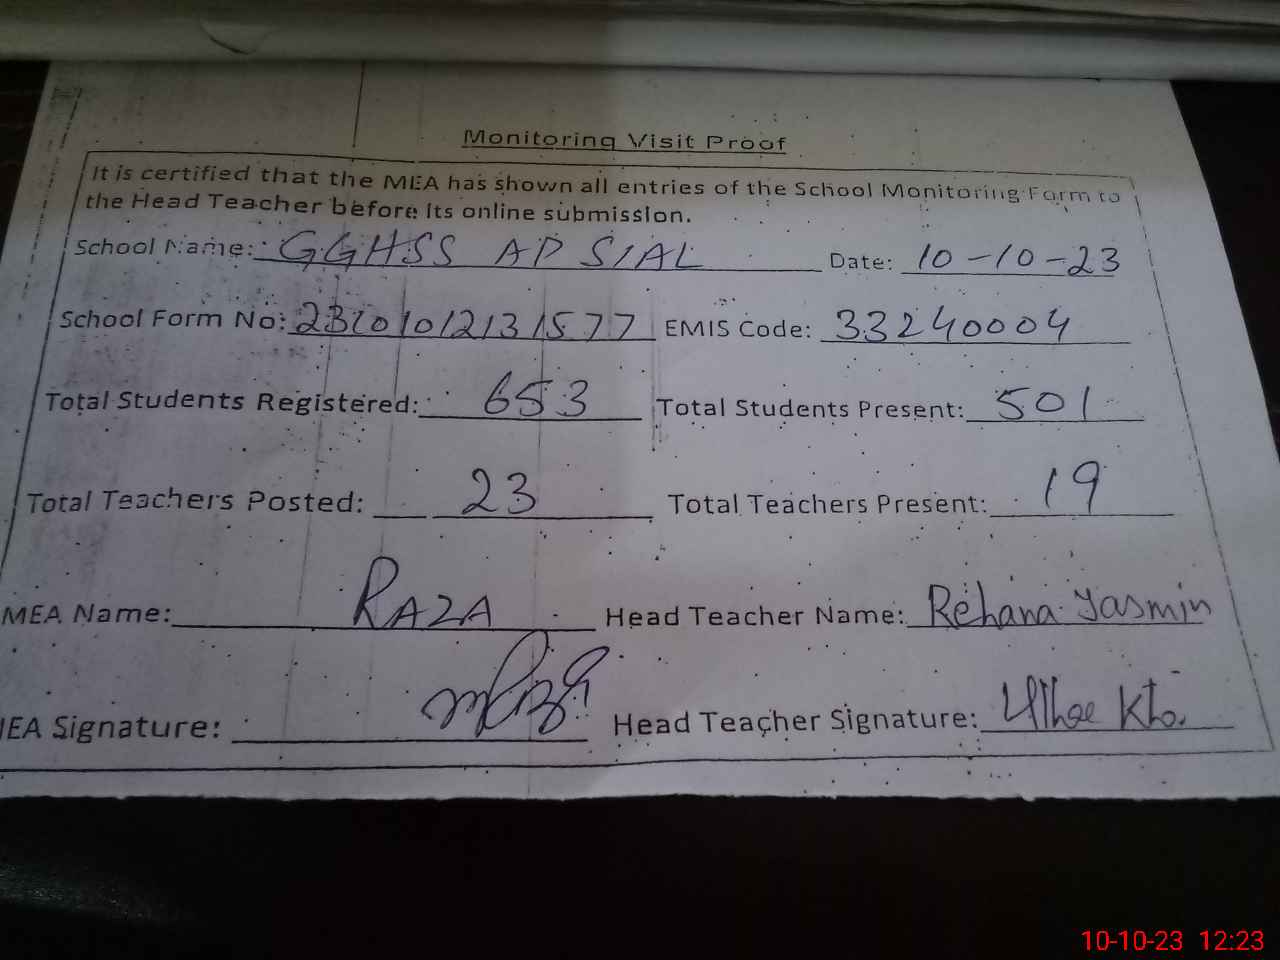 Monitoring Visit Proof
It is certified that the MEA has shown all entries of the School Monitoring Form to
the Head Teacher before its online submission.
School Name: GGHSS AP SIAL Date: 10-10-23
School Form No: 2310101213 1577 EMIS Code: 33240004
Total Students Registered: 653 Total Students Present: 501
Total Teachers Posted: 23 Total Teachers Present: 19
MEA Name: RAZA Head Teacher Name: Rehana Yasmin
EA Signature: Head Teacher Signature:
10-10-23 12:23